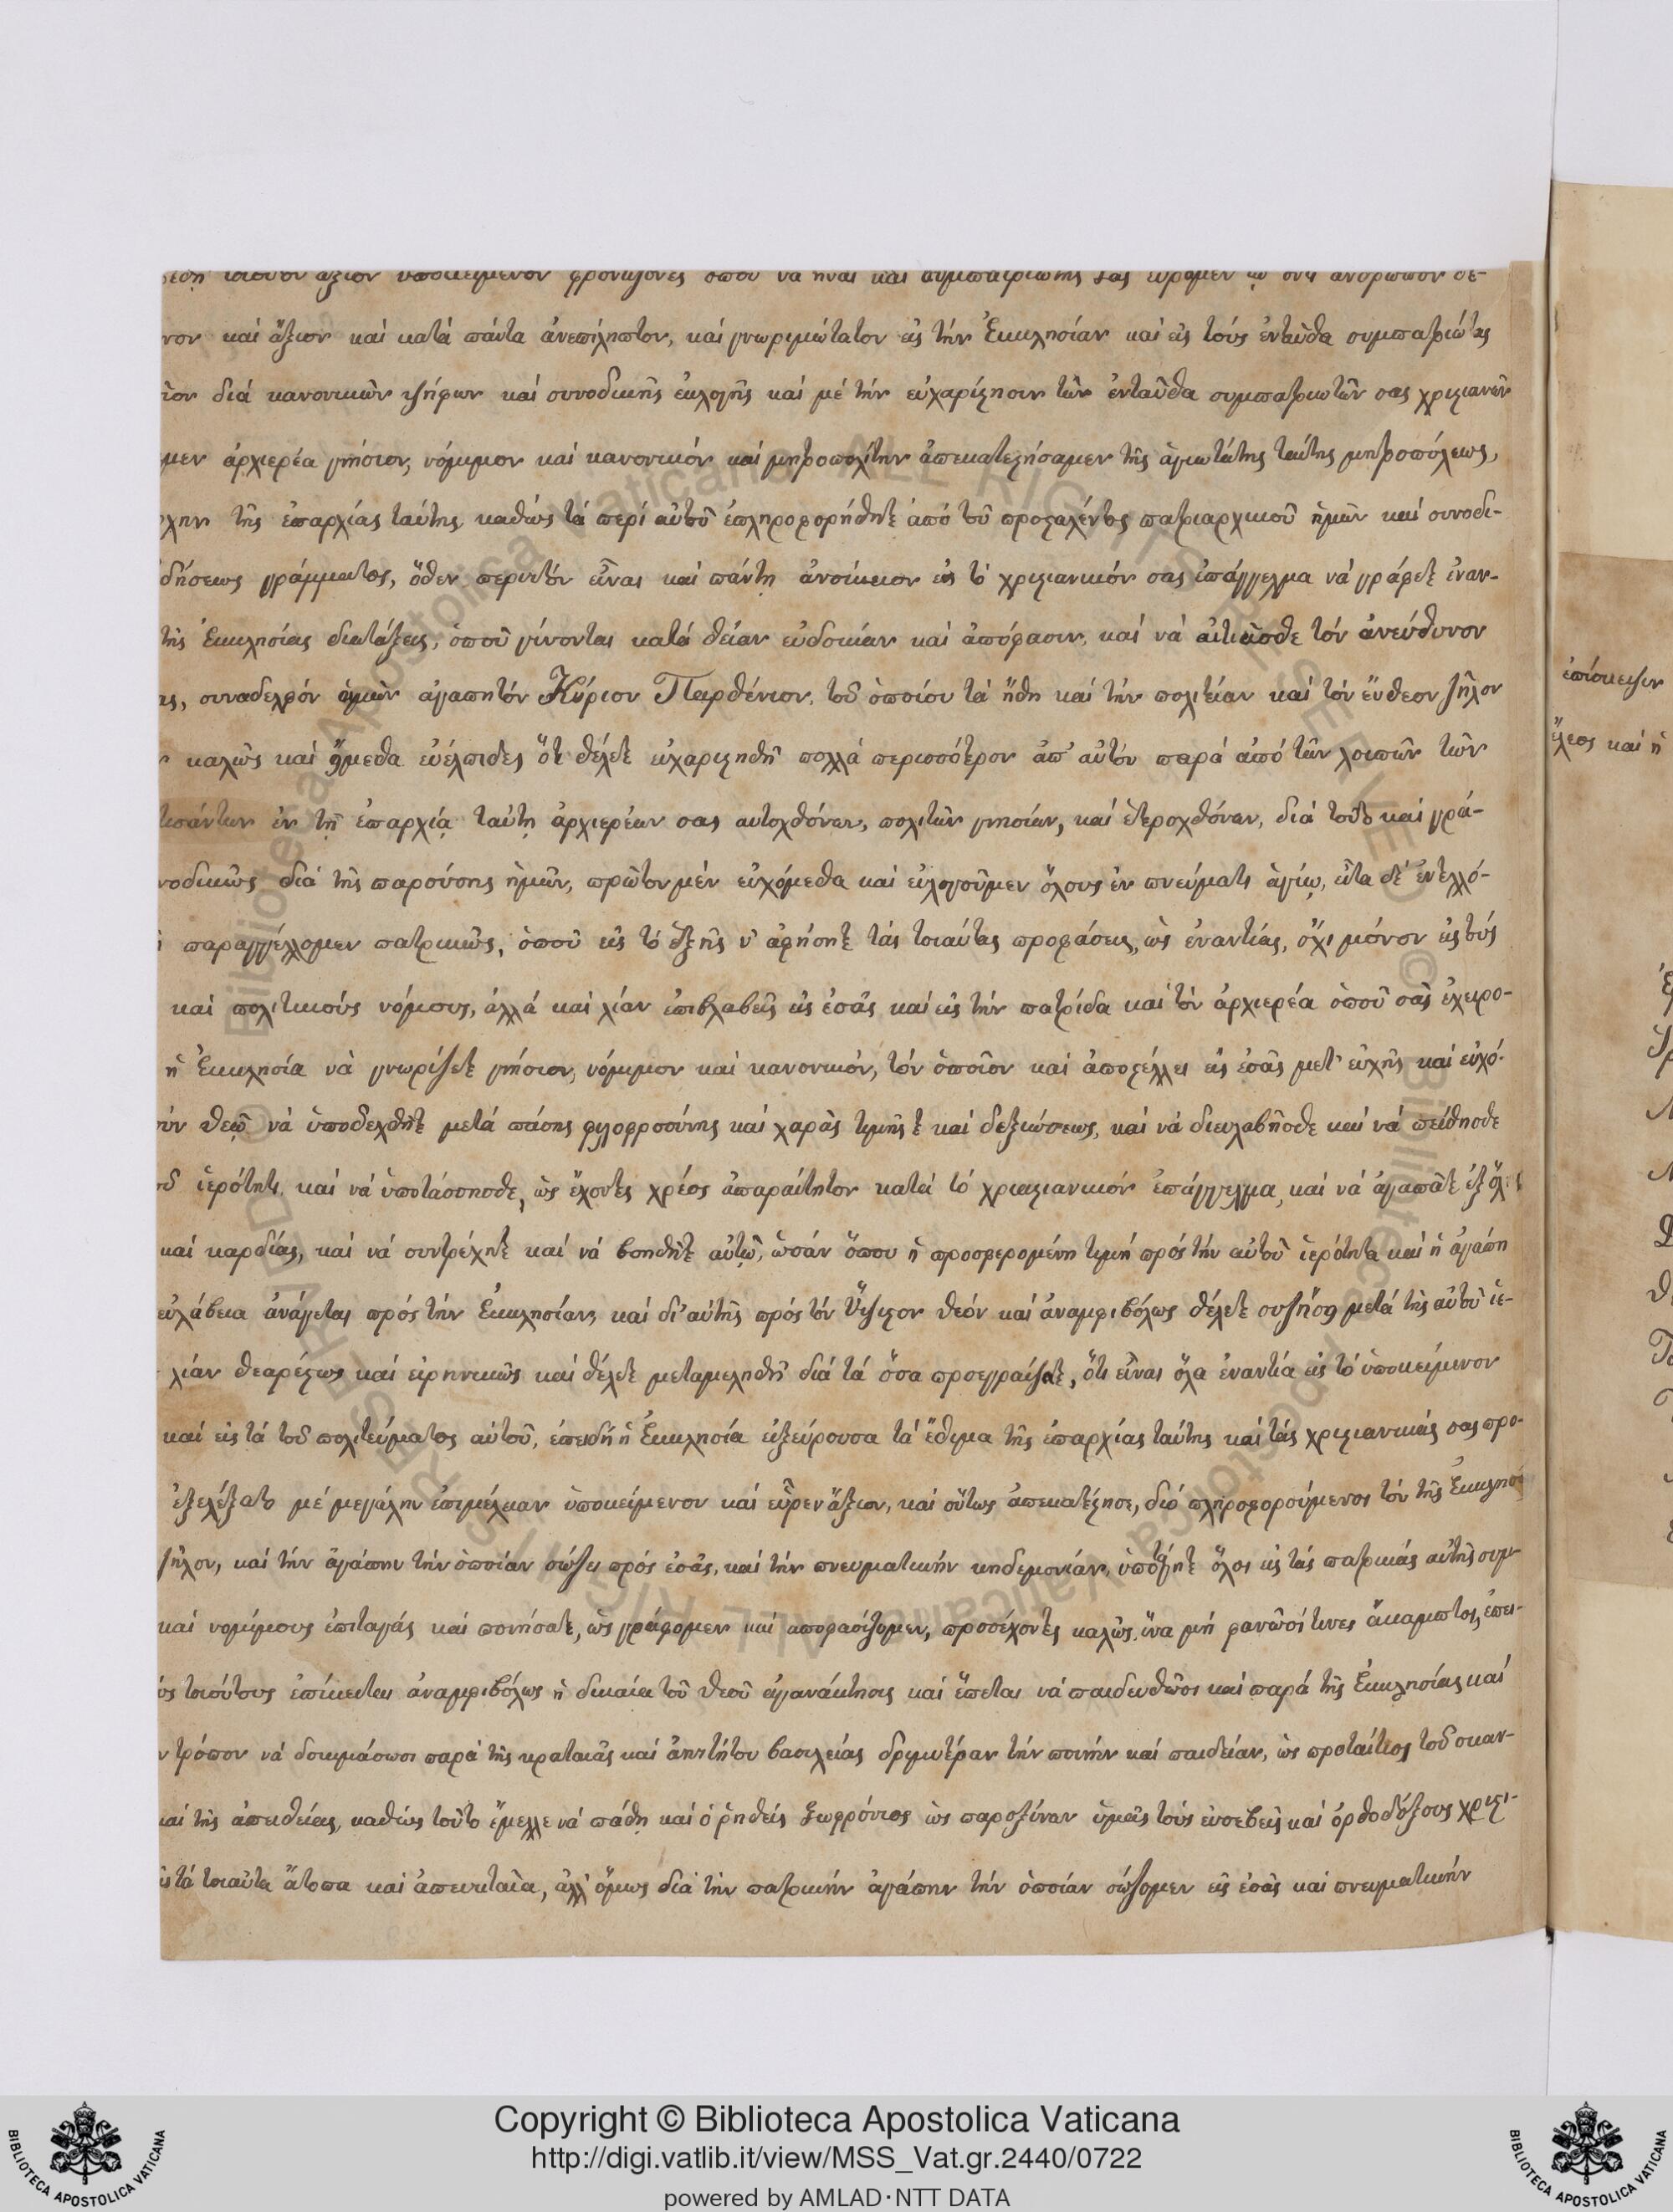 τοιοῦτον ἄξιον ὑποκείμενον φροντίζοντες ὁποῦ νὰ ἦναι καὶ συμπατριώτης σας εὕρομεν τῷ ὄντι ἄνθρωπον σε-
καί ἄξιον καί κατά πάντα ἀνεπίληπτον, καί γνωριμώτατον εἰς τήν Ἐκκλησίαν καί εἰς τούς ἐνταῦθα συμπατριώτας
διά κανονικῶν ψήφων καί συνοδικῆς ἐκλογῆς καί μέ τήν εὐχαρίστησιν τῶν ἐνταῦθα συμπατριωτῶν σας χριστιανῶν
μεν ἀρχιερέα γνήσιον, νόμιμον καί κανονικόν καί μητροπολίτην ἀπεκατεστήσαμεν τῆς ἁγιωτάτης ταύτης μητροπόλεως,
τῆς ἐπαρχίας ταύτης καθώς τά περί αὐτοῦ ἐπληροφορήθητε ἀπό τοῦ προσταλέντος πατριαρχικοῦ ἡμῶν καί συνοδι-
δήσεως γράμματος, ὅθεν περιττόν εἶναι καί πάντη ἀνοίκειον εἰς τό χριστιανικόν σας ἐπάγγελμα νά γράφετε ἐναν-
τῆς Ἐκκλησίας διατάξεις, ὁποῦ γίνονται κατά θείαν εὐδοκίαν καί ἀπόφασιν, καί νά αἰτιᾶσθε τόν ἀνεύθυνον
ας, συναδελφόν ἡμῶν ἀγαπητόν Κύριον Παρθένιον, τοῦ ὁποίου τά ἤθη καί τήν πολιτείαν καί τόν ἔνθεον ζῆλον
καλῶς καί ἤμεθα εὐέλπιδες ὅτι θέλετε εὐχαριστηθῆ πολλά περισσότερον ἀπ' αὐτόν παρά ἀπό τῶν λοιπῶν τῶν
τισάντων ἐν τῇ ἐπαρχίᾳ ταύτῃ ἀρχιερέων σας αὐτοχθόνων, πολιτῶν γνησίων, καί ἑτεροχθόνων, διά τοῦτο καί γρά-
νοδικῶς διά τῆς παρούσης ἡμῶν, πρῶτον μέν εὐχόμεθα καί εὐλογοῦμεν ὅλους ἐν πνεύματι ἁγίῳ, εἶτα δέ ἐντελλό-
παραγγέλλομεν πατρικῶς, ὁποῦ εἰς τό ἑξῆς ν' ἀφήσητε τάς τοιαύτας προφάσεις, ὡς ἐναντίας, ὄχι μόνον εἰς τούς
καί πολιτικούς νόμους, ἀλλά καί λίαν ἐπιβλαβεῖς εἰς ἐσᾶς καί εἰς τήν πατρίδα καί τόν ἀρχιερέα ὁποῦ σᾶς ἐχειρο-
ἡ Ἐκκλησία νὰ γνωρίζετε γνήσιον, νόμιμον καί κανονικόν, τόν ὁποῖον καί ἀποστέλλει εἰς ἐσᾶς μετ' εὐχῆς καί εὐχό-
θεῷ νά ὑποδεχθῆτε μετά πάσης φιλοφροσύνης καί χαρᾶς τιμῆς τε καί δεξιώσεως, καί νά διευλαβῆσθε καί νά πείθησθε
ἱερότητι, καί νά ὑποτάσσησθε, ὡς ἔχοντες χρέος ἀπαραίτητον κατά τό χριστιανικόν ἐπάγγελμα, καί νά ἀγαπᾶτε ἐξ ὅλης
καί καρδίας, καί νά συντρέχητε καί νά βοηθῆτε αὐτῷ, ὡσάν ὅπου ἡ προσφερομένη τιμή πρός τήν αὐτοῦ ἱερότητα καί ἡ ἀγάπη
εὐλάβεια ἀνάγεται πρός τήν Ἐκκλησίαν, καί δι' αὐτῆς πρός τόν Ὕψιστον θεόν καί ἀναμφιβόλως θέλετε συζήσῃ μετά τῆς αὐτοῦ ἱε-
λίαν θεαρέστως καί εἰρηνικῶς καί θέλετε μεταμεληθῆ διά τά ὅσα προεγράψατε, ὅτι εἶναι ὅλα ἐναντία εἰς τό ὑποκείμενον
καί εἰς τά τοῦ πολιτεύματος αὐτοῦ, ἐπειδή ἡ Ἐκκλησία ἐξεύρουσα τά ἔθιμα τῆς ἐπαρχίας ταύτης καί τάς χριστιανικάς σας προ-
ἐξελέξατο μέ μεγάλην ἐπιμέλειαν ὑποκείμενον καί εὗρεν ἄξιον, καί οὕτως ἀπεκατέστησε, διό πληροφορούμενοι τόν τῆς Ἐκκλησί
ζῆλον, καί τήν ἀγάπην τήν ὁποίαν σώζει πρός ἐσᾶς, καί τήν πνευματικήν κηδεμονίαν, ὑπόζητε ὅλοι εἰς τάς πατρικάς αὐτῆς συμ
καί νομίμους ἐπιταγάς καί ποιήσατε, ὡς γράφομεν καί ἀποφασίζομεν, προσέχοντες καλῶς, ἵνα μή φανῶσί τινες ἄκαμπτοι, ἐπει-
τοιούτους ἐπίκειται ἀναμφιβόλως ἡ δικαία τοῦ θεοῦ ἀγανάκτησις καί ἕπεται νά παιδευθῶσι καί παρά τῆς Ἐκκλησίας καί
τρόπον νά δοκιμάσωσι παρά τῆς κραταιᾶς καί ἀηττήτου βασιλείας δριμυτέραν τήν ποινήν καί παιδείαν, ὡς πρωταίτιοι τοῦ σκαν-
καί τῆς ἀπειθείας, καθώς τοῦτο ἔμελλε νά πάθῃ καί ὁ ῥηθείς Σωφρόνιος ὡς παροξύνων ὑμᾶς τούς εὐσεβεῖς καί ὀρθοδόξους χριστι-
τά τοιαῦτα ἄτοπα καί ἀπευκταῖα, ἀλλ' ὅμως διά τήν πατρικήν ἀγάπην τήν ὁποίαν σώζομεν εἰς ἐσᾶς καί πνευματικήν
ἐπίσκεψιν
ἔλεος καί ἡ
Copyright © Biblioteca Apostolica Vaticana
http://digi.vatlib.it/view/MSS_Vat.gr.2440/0722
powered by AMLAD·NTT DATA
BIBLIOTECA APOSTOLICA VATICANA
BIBLIOTECA APOSTOLICA VATICANA